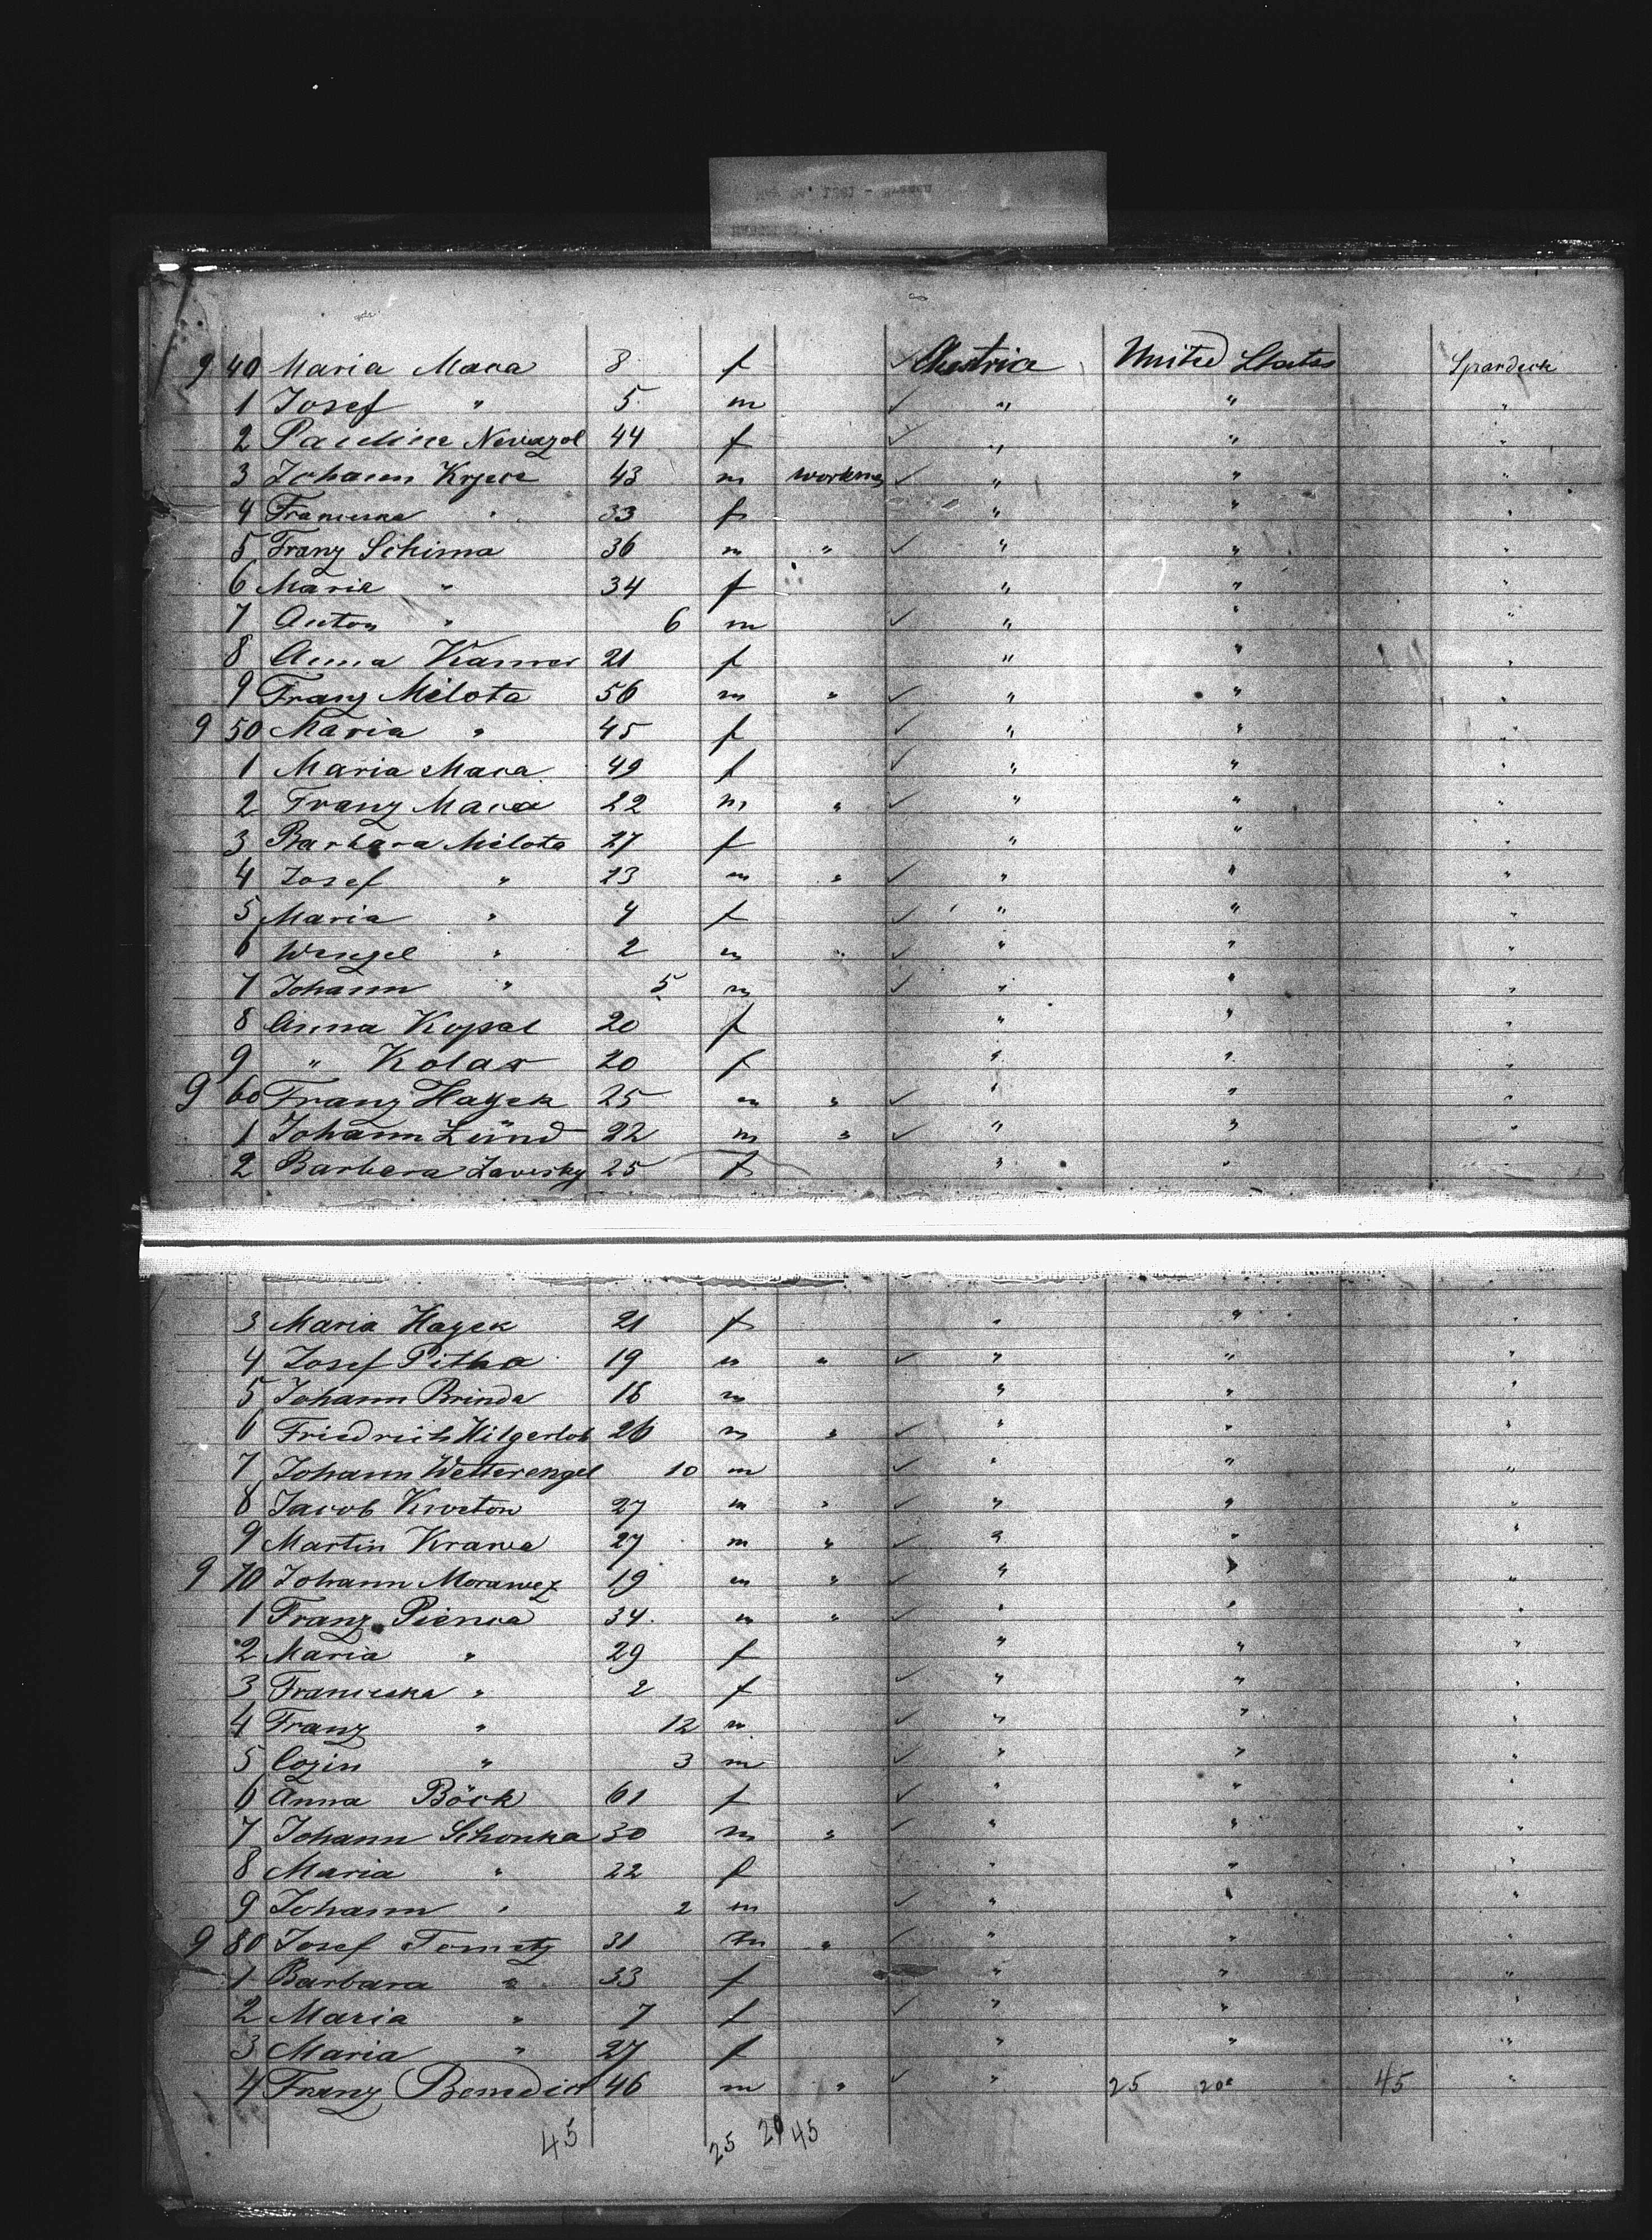 9 40 Maria Maca 8 f ✓ Austria United States Spardeck
1 Josef " 5 m ✓ " " "
2 Pauline Nevazol 44 f ✓ " " "
3 Johann 43 m workman ✓ " " "
4 Franciska " 33 f " " "
5 Franz Schima 36 m " ✓ " " "
6 Marie " 34 f " " "
7 Anton " 6 m ✓ " " "
8 Anna 21 f " " "
9 Franz Milota 56 m " ✓ " " "
9 50 Maria " 45 f ✓ " " "
1 Maria Maca 49 f ✓ " " "
2 Franz Maca 22 m " ✓ " " "
3 Barbara Milota 27 f " " "
4 Josef " 23 m " ✓ " " "
5 Maria " 4 f ✓ " " "
6 Wenzel " 2 m " ✓ " " "
7 Johann " 5 m ✓ " " "
8 Anna Kopal 20 f " " "
9 " Kolar 20 f " " "
9 60 Franz Hayek 25 m " ✓ " " "
1 Johann Zünd 22 m " ✓ " " "
2 Barbara Zavesky 25 f " "
3 Maria Hayek 21 f " " "
4 Josef Pitha 19 m " ✓ " " "
5 Johann Brinda 18 m " " "
6 Friedrich 26 m " ✓ " " "
7 Johann Wetterengel 10 m ✓ " " "
8 Jacob 27 m " ✓ " " "
9 Martin Krawa 27 m " ✓ " " "
9 70 Johann Morawez 19 m " ✓ " " "
1 Franz Pienca 34 m " ✓ " " "
2 Maria " 29 f " " "
3 Franciska " 2 f ✓ " " "
4 Franz " 12 m ✓ " " "
5 " 3 m ✓ " " "
6 Anna Böck 61 f ✓ " " "
7 Johann Schonka 30 m " ✓ " " "
8 Maria " 22 f " " "
9 Johann " 2 m ✓ " " "
9 80 Josef Tometz 31 m " ✓ " " "
1 Barbara " 33 f " " "
2 Maria " 7 f ✓ " " "
3 Maria " 27 f " " "
4 Franz Benedict 46 m " ✓ " 25 20 45 "
45 25 20 45